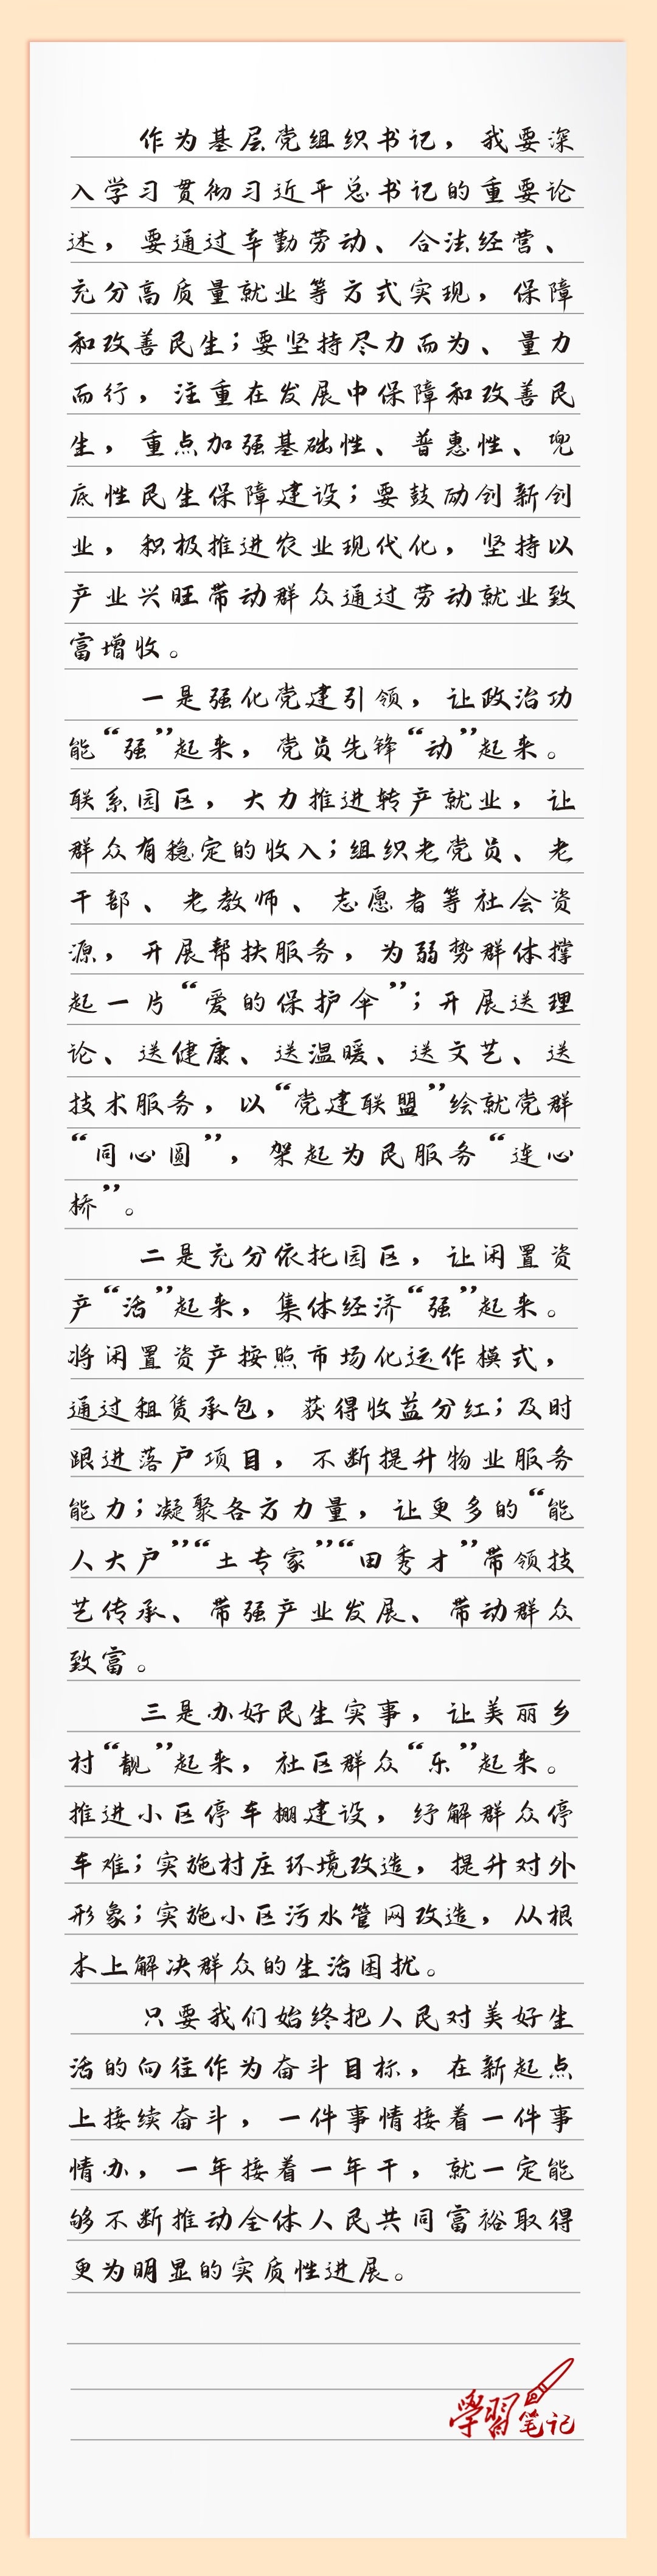 作为基层党组织书记，我要深
入学习贯彻习近平总书记的重要论
述，要通过辛勤劳动、合法经营、
充分高质量就业等方式实现，保障
和改善民生；要坚持尽力而为、量力
而行，注重在发展中保障和改善民
生，重点加强基础性、普惠性、兜
底性民生保障建设；要鼓励创新创
业，积极推进农业现代化，坚持以
产业兴旺带动群众通过劳动就业致
富增收。
一是强化党建引领，让政治功
能“强”起来，党员先锋“动”起来。
联系园区，大力推进转产就业，让
群众有稳定的收入；组织老党员、老
干部、老教师、志愿者等社会资
源，开展帮扶服务，为弱势群体撑
起一片“爱的保护伞”；开展送理
论、送健康、送温暖、送文艺、送
技术服务，以“党建联盟”绘就党群
“同心圆”，架起为民服务“连心
桥”。
二是充分依托园区，让闲置资
产“活”起来，集体经济“强”起来。
将闲置资产按照市场化运作模式，
通过租赁承包，获得收益分红；及时
跟进落户项目，不断提升物业服务
能力；凝聚各方力量，让更多的“能
人大户”“土专家”“田秀才”带领技
艺传承、带强产业发展、带动群众
致富。
三是办好民生实事，让美丽乡
村“靓”起来，社区群众“乐”起来。
推进小区停车棚建设，纾解群众停
车难；实施村庄环境改造，提升对外
形象；实施小区污水管网改造，从根
本上解决群众的生活困扰。
只要我们始终把人民对美好生
活的向往作为奋斗目标，在新起点
上接续奋斗，一件事情接着一件事
情办，一年接着一年干，就一定能
够不断推动全体人民共同富裕取得
更为明显的实质性进展。
學習笔记